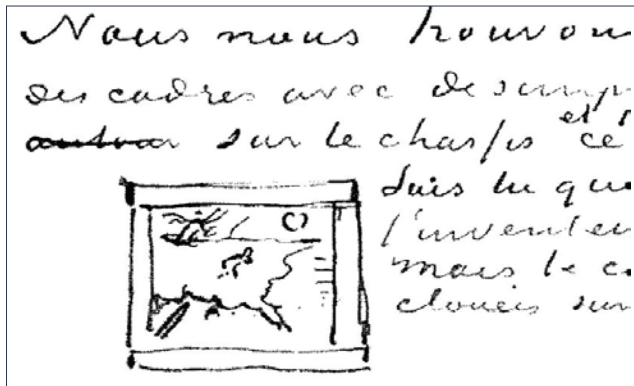 Nous nous trouvon
des cadres avec de simp
sur le chassis et ce
sais tu que
l'inventeu
mais le c
cloués sur